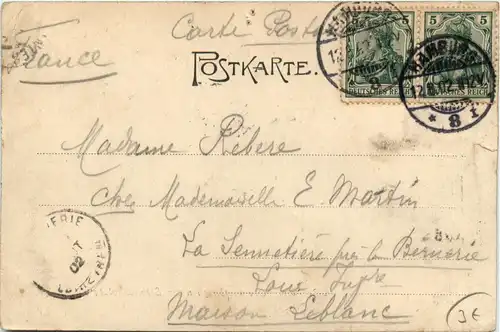 Carte Postale
France
POSTKARTE.
5 5
DEUTSCHES REICH DEUTSCHES REICH
HAMBURG HAMBURG
12.8.02
* 8 f
Madame Rebere
chez Mademoiselle E Martin
La Sennetière près la Bernerie
Loire Infre
Maison Leblanc
02
3€